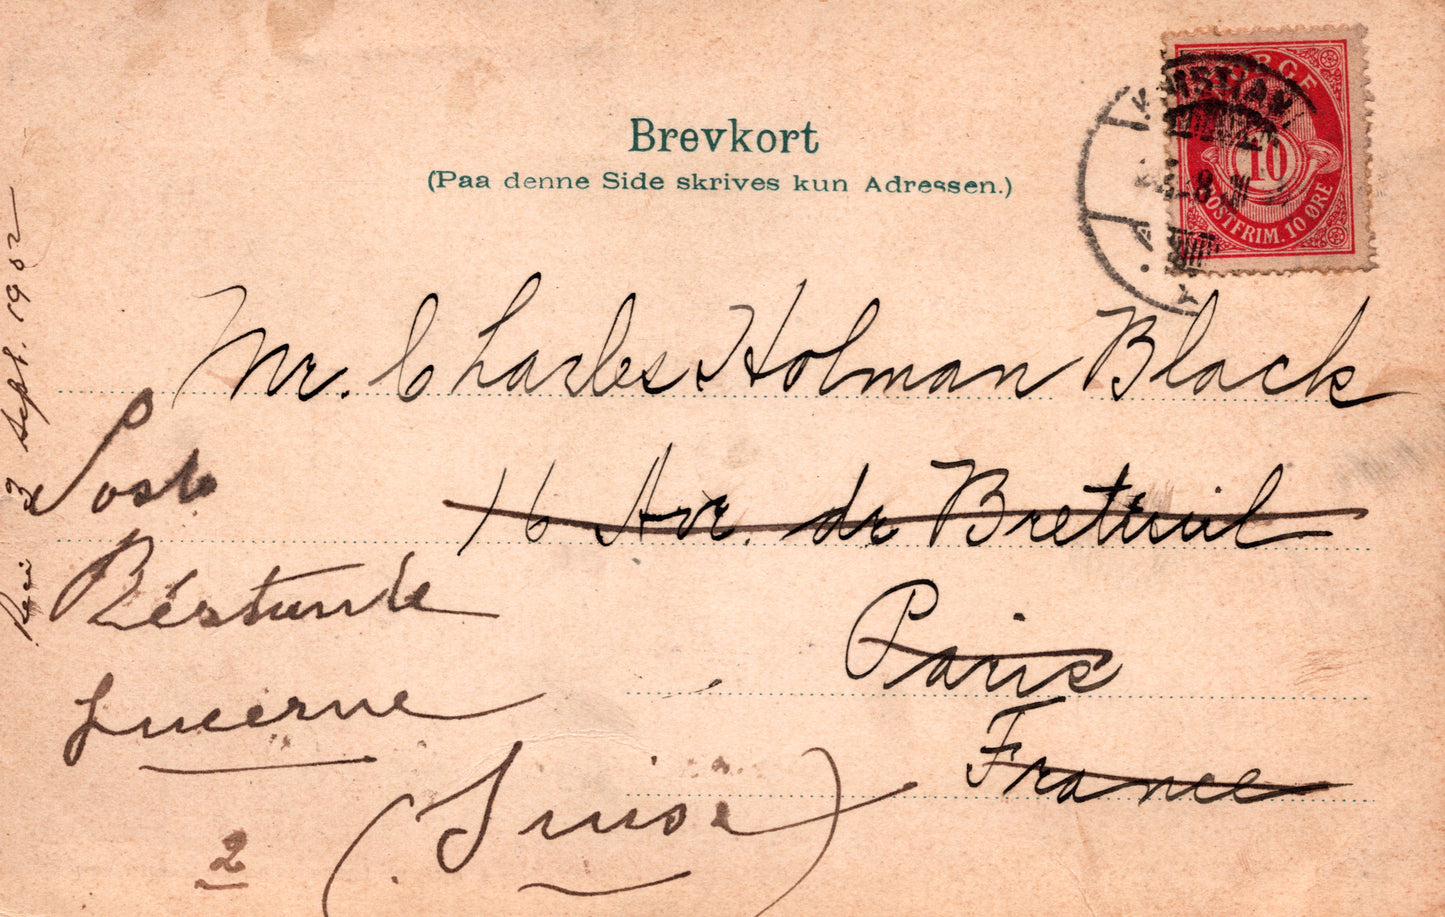 Brevkort
(Paa denne Side skrives kun Adressen.)
NORGE
10
POSTFRIM. 10 ØRE
Mr. Charles Holman Black
16 Av. de Breteuil
Paris
France
Poste
Réstante
Lucerne
(Suisse)
2
3 Sept. 1902